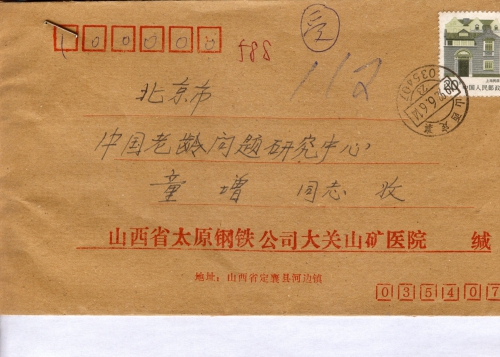 100000
588
受
112
北京市
中国老龄问题研究中心
童增 同志 收
山西省太原钢铁公司大关山矿医院 缄
地址：山西省定襄县河边镇
035407
中国人民邮政
20